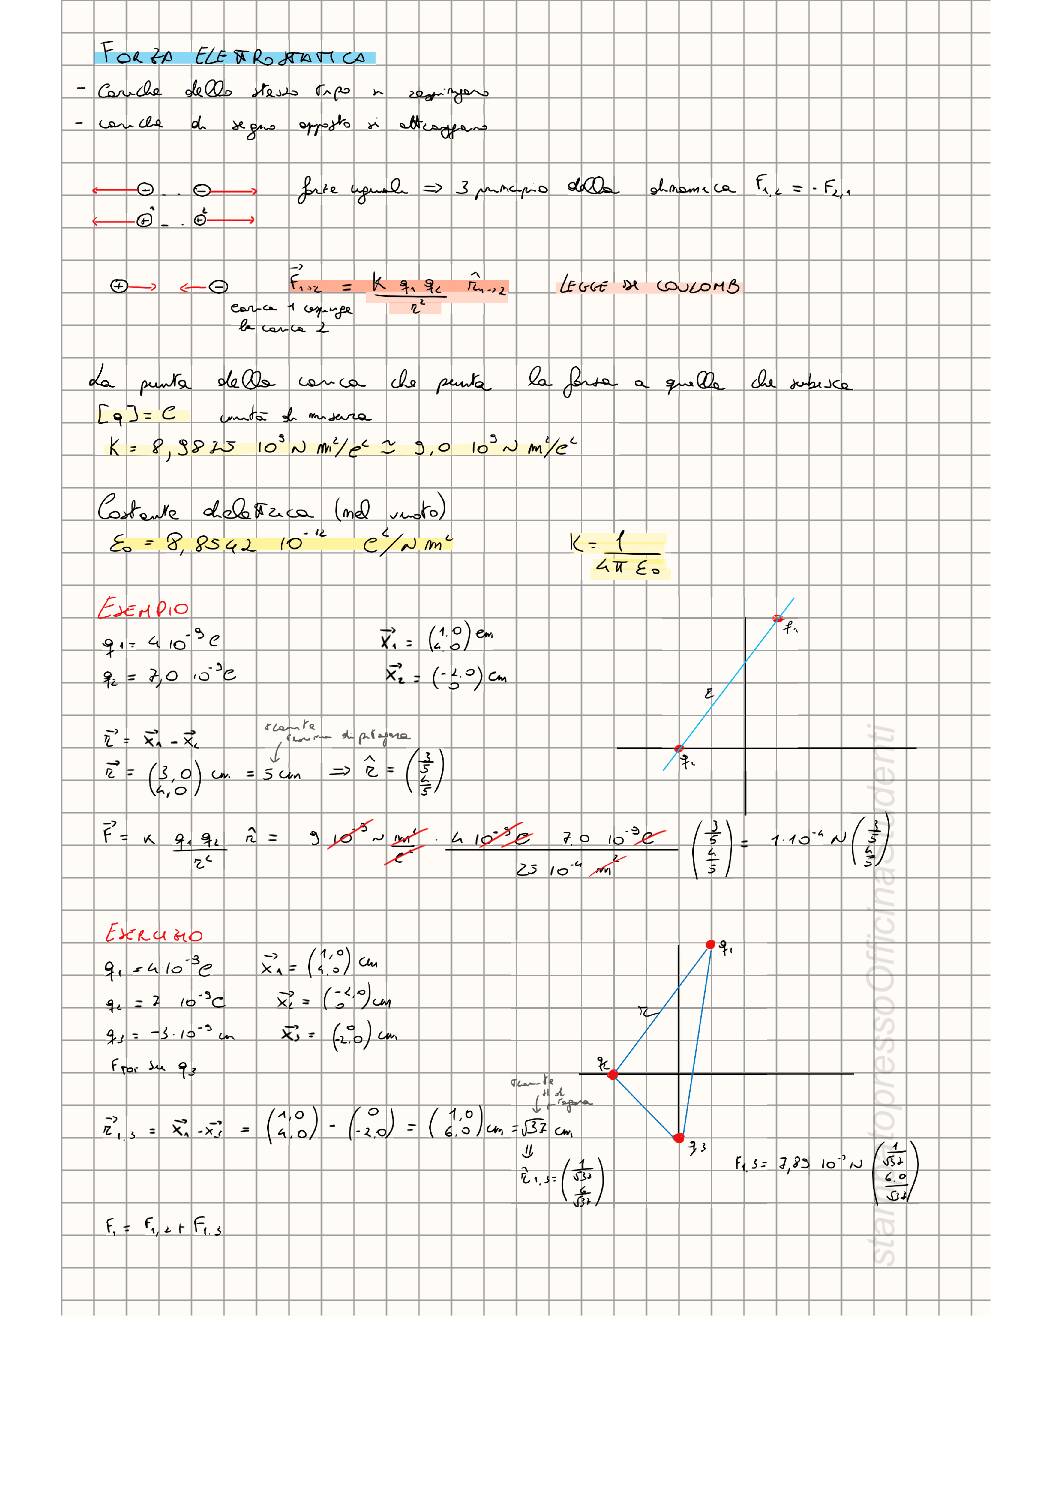 FORZA ELETTROSTATICA
- Cariche dello stesso tipo si respingono
- cariche di segno opposto si attraggono
forze uguali ⇒ 3 principio della dinamica F1,2 = - F2,1
F⃗1→2 = K q1 q2 r̂1→2 / r² LEGGE DI COULOMB
carica 1 respinge
la carica 2
La punta della carica che punta la forza a quella che subisce
[q] = C unità di misura
K = 8,9875 10⁹ N m²/C² ≃ 9,0 10⁹ N m²/C²
Costante dielettrica (nel vuoto)
ε0 = 8,8542 10⁻¹² C²/N m² K = 1 / 4π ε0
ESEMPIO
q1 = 4 10⁻⁹ C x⃗1 = (1,0 4,0) cm
q2 = 7,0 10⁻⁹ C x⃗2 = (-2,0 0) cm
q1
r
q2
r⃗ = x⃗1 - x⃗2
tramite teorema di pitagora
r⃗ = (3,0 4,0) cm = 5 cm ⇒ r̂ = (3/5 4/5)
F⃗ = K q1 q2 / r² r̂ = 9 10⁻⁹ N m²/C² · 4 10⁻⁹ C 7,0 10⁻⁹ C / 25 10⁻⁴ m² (3/5 4/5) = 1·10⁻⁴ N (3/5 4/5)
ESERCIZIO
q1 = 4 10⁻⁹ C x⃗1 = (1,0 4,0) cm
q2 = 7 10⁻⁹ C x⃗2 = (-2,0 0) cm
q3 = -3·10⁻⁹ cm x⃗3 = (0 -2,0) cm
F tot su q3
q1
r
q2
q3
tramite
r⃗1,3 = x⃗1 - x⃗3 = (1,0 4,0) - (0 -2,0) = (1,0 6,0) cm = √37 cm
⇓
r̂1,3 = (1/√37 6/√37)
F1,3 = 2,89 10⁻⁵ N (1/√37 6,0/√37)
F1 = F1,2 + F1,3
stampatopressoOfficinaStudenti